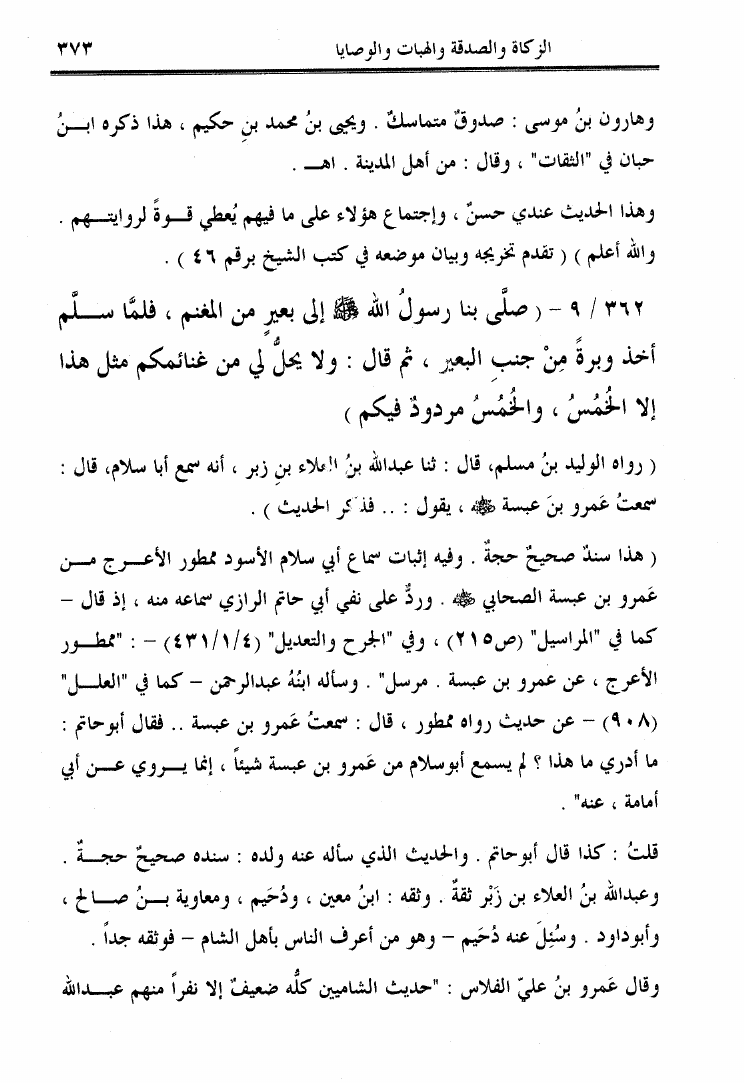 الزكاة والصدقة والهبات والوصايا ٣٧٣
وهارون بنُ موسى : صدوقٌ متماسكٌ . ويحيى بنُ محمد بنِ حكيم ، هذا ذكره ابــنُ
حبان في "الثقات" ، وقال : من أهل المدينة . اهــ .
وهذا الحديث عندي حسنٌ ، وإجتماع هؤلاء على ما فيهم يُعطي قــوةً لروايتــهم .
والله أعلم ) ( تقدم تخريجه وبيان موضعه في كتب الشيخ برقم ٤٦ ) .
٣٦٢ / ٩ - ( صلَّى بنا رسولُ الله ﷺ إلى بعيرٍ من المغنم ، فلمَّا ســلَّم
أخذ وبرةً مِنْ جنبِ البعير ، ثم قال : ولا يحلُّ لي من غنائمكم مثل هذا
إلا الخُمُسُ ، والخُمُسُ مردودٌ فيكم )
( رواه الوليد بنُ مسلم، قال : ثنا عبدالله بنُ العلاء بنِ زبر ، أنه سمع أبا سلام، قال :
سمعتُ عَمرو بنَ عبسة ﷺ ، يقول : .. فذكر الحديث ) .
( هذا سندٌ صحيحٌ حجةٌ . وفيه إثبات سماع أبي سلام الأسود ممطور الأعــرج مــن
عَمرو بن عبسة الصحابي ﷺ . وردٌّ على نفي أبي حاتم الرازي سماعه منه ، إذ قال –
كما في "المراسيل" (ص٢١٥) ، وفي "الجرح والتعديل" (٤٣١/١/٤) – : "ممطــور
الأعرج ، عن عمرو بن عبسة . مرسل" . وسأله ابنُهُ عبدالرحمن – كما في "العلــل"
(٩٠٨) – عن حديث رواه ممطور ، قال : سمعتُ عَمرو بن عبسة .. فقال أبوحاتم :
ما أدري ما هذا ؟ لم يسمع أبوسلام من عَمرو بن عبسة شيئاً ، إنما يــروي عــن أبي
أمامة ، عنه" .
قلتُ : كذا قال أبوحاتم . والحديث الذي سأله عنه ولده : سنده صحيحٌ حجــةٌ .
وعبدالله بنُ العلاء بن زَبْر ثقةٌ . وثقه : ابنُ معين ، ودُحَيم ، ومعاوية بــنُ صــالح ،
وأبوداود . وسُئِلَ عنه دُحَيم – وهو من أعرف الناس بأهل الشام – فوثقه جداً .
وقال عَمرو بنُ عليّ الفلاس : "حديث الشاميين كلُّه ضعيفٌ إلا نفراً منهم عبــدالله